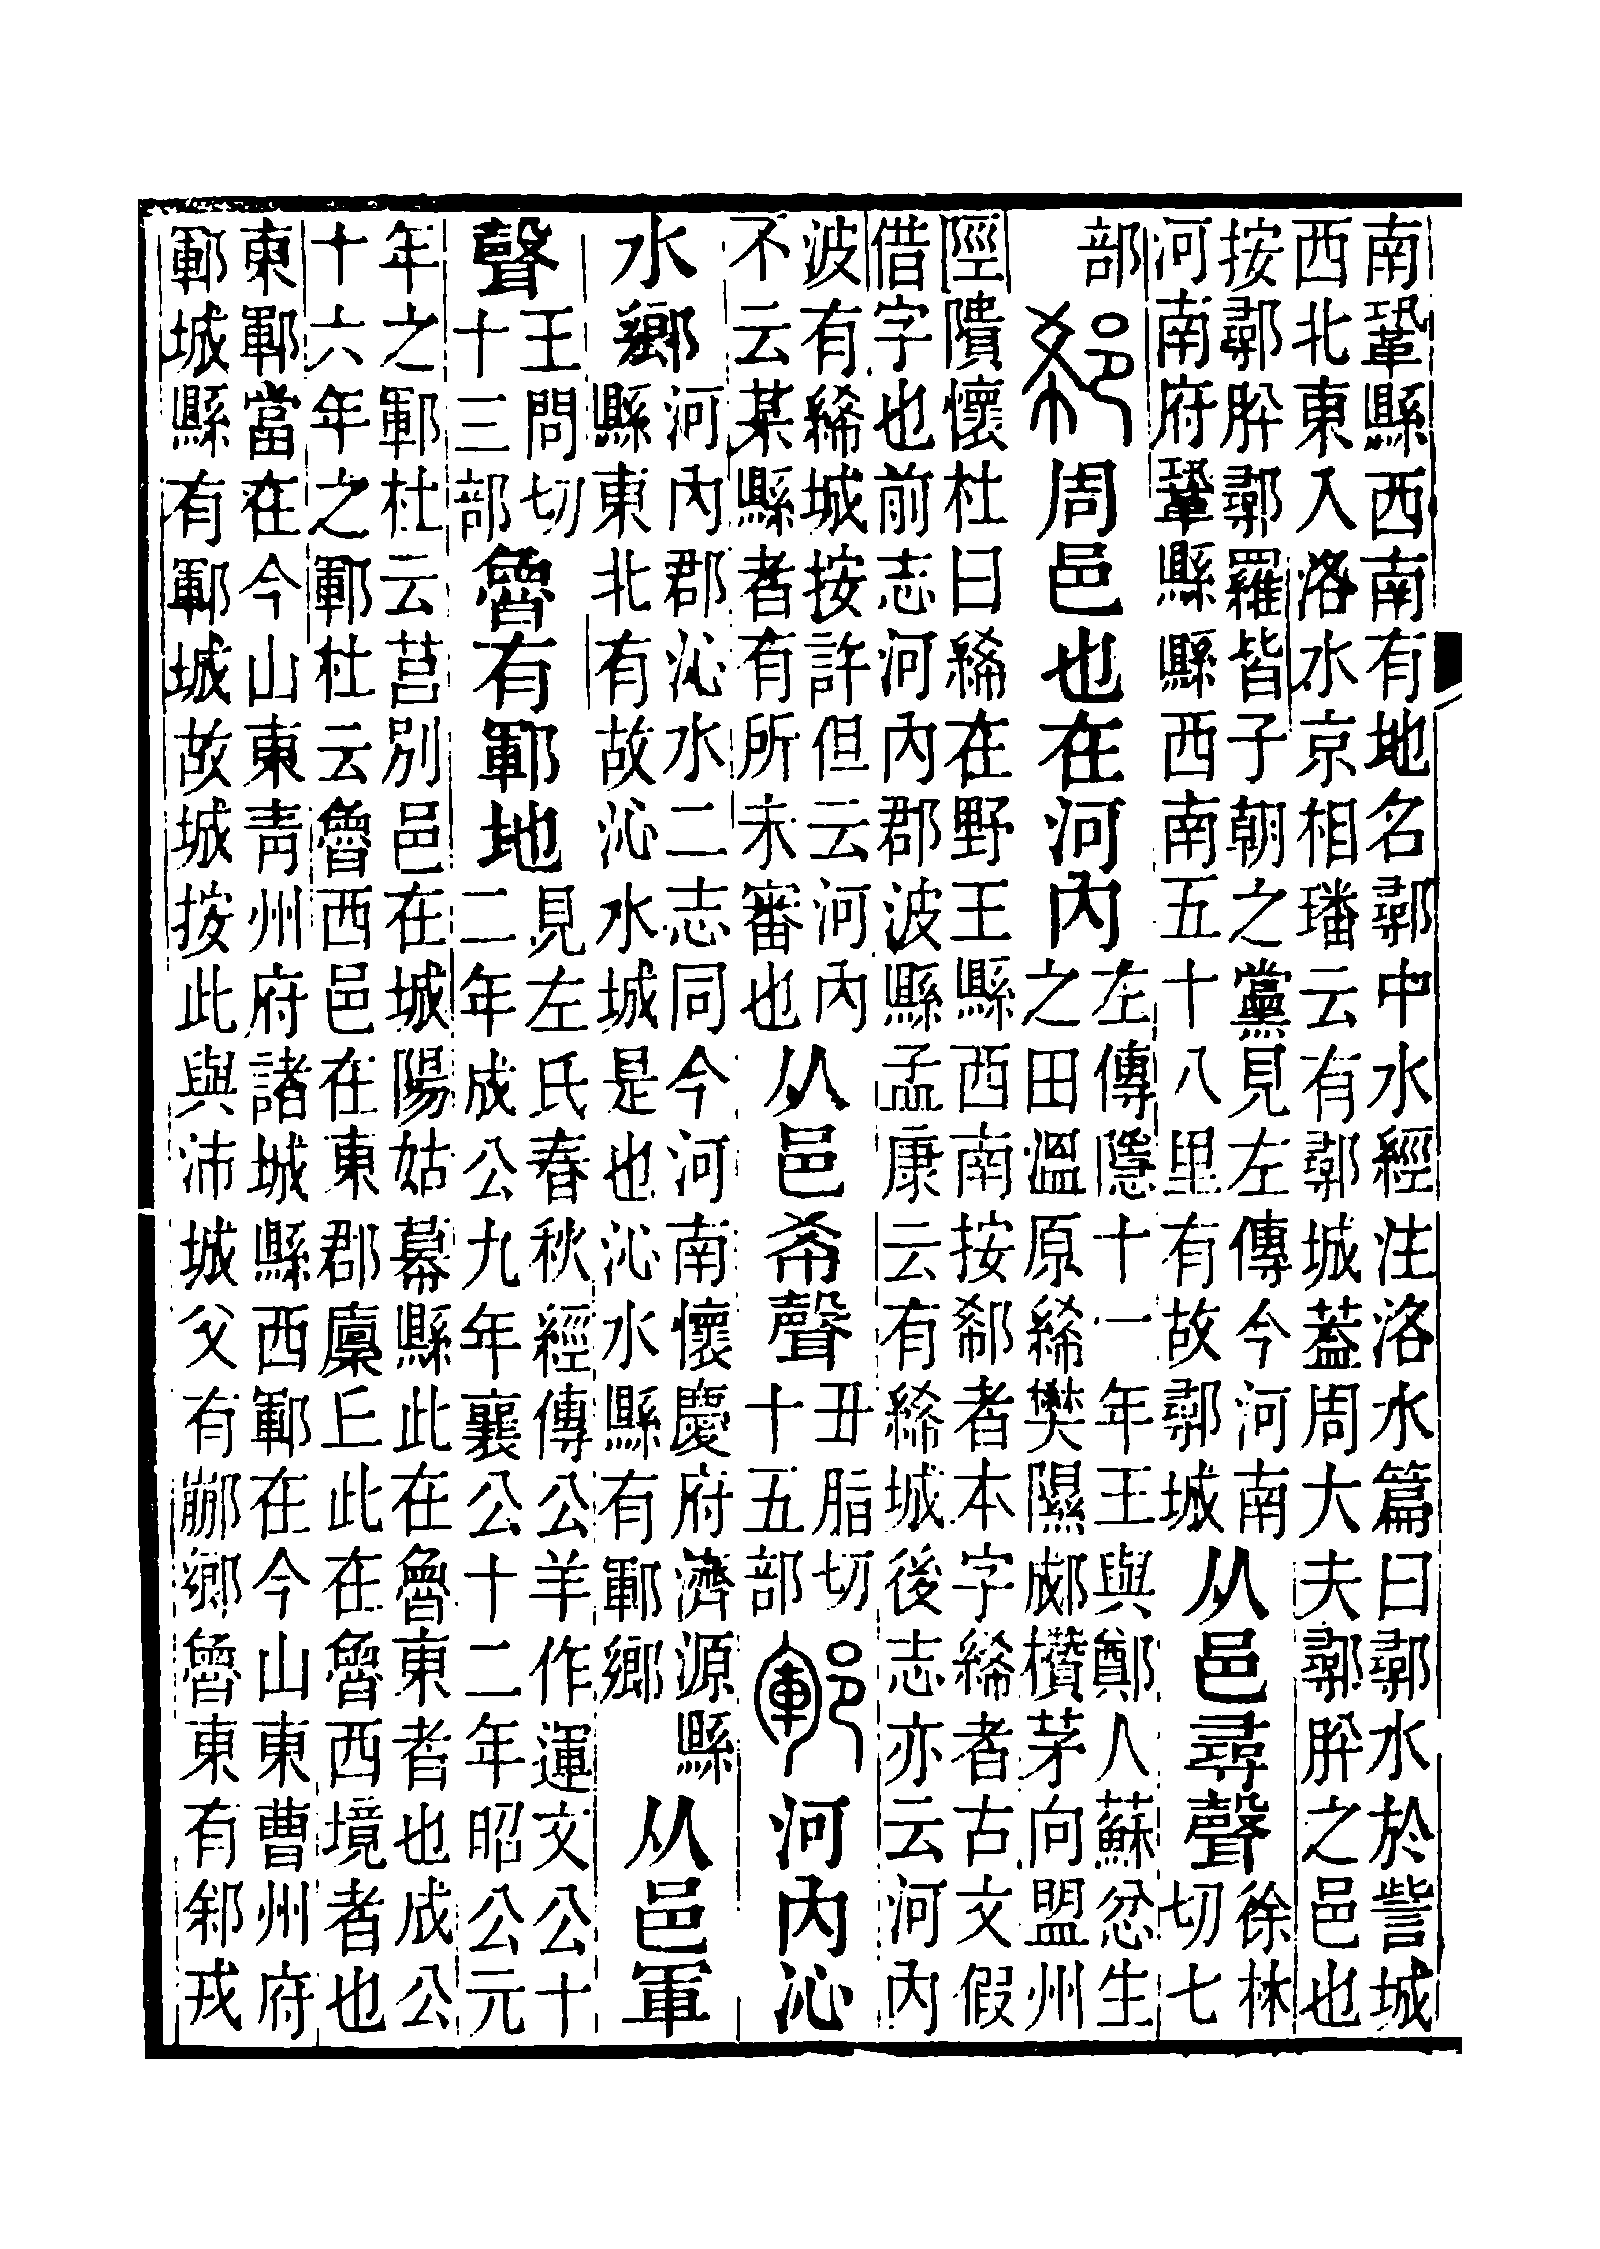 南鞏縣西南有地名鄩中水經注洛水篇曰鄩水於訾城
西北東入洛水京相璠云有鄩城蓋周大夫鄩肸之邑也
按鄩肸鄩羅皆子朝之黨見左傳今河南
河南府鞏縣縣西南五十八里有故鄩城
从邑尋聲
徐林
切七
部
郗
周邑也在河內
左傳隱十一年王與鄭人蘇忿生
之田溫原絺樊隰郕欑茅向盟州
陘隤懷杜曰絺在野王縣西南按郗者本字絺者古文假
借字也前志河內郡波縣孟康云有絺城後志亦云河內
波有絺城按許但云河內
不云某縣者有所未審也
从邑希聲
丑脂切
十五部
鄆
河內沁
水鄉
河內郡沁水二志同今河南懷慶府濟源縣
縣東北有故沁水城是也沁水縣有鄆鄉
从邑軍
聲
王問切
十三部
魯有鄆地
見左氏春秋經傳公羊作運文公十
二年成公九年襄公十二年昭公元
年之鄆杜云莒別邑在城陽姑幕縣此在魯東者也成公
十六年之鄆杜云魯西邑在東郡廩丘此在魯西境者也
東鄆當在今山東青州府諸城縣西鄆在今山東曹州府
鄆城縣有鄆城故城按此與沛城父有䣙鄉魯東有䣄戎